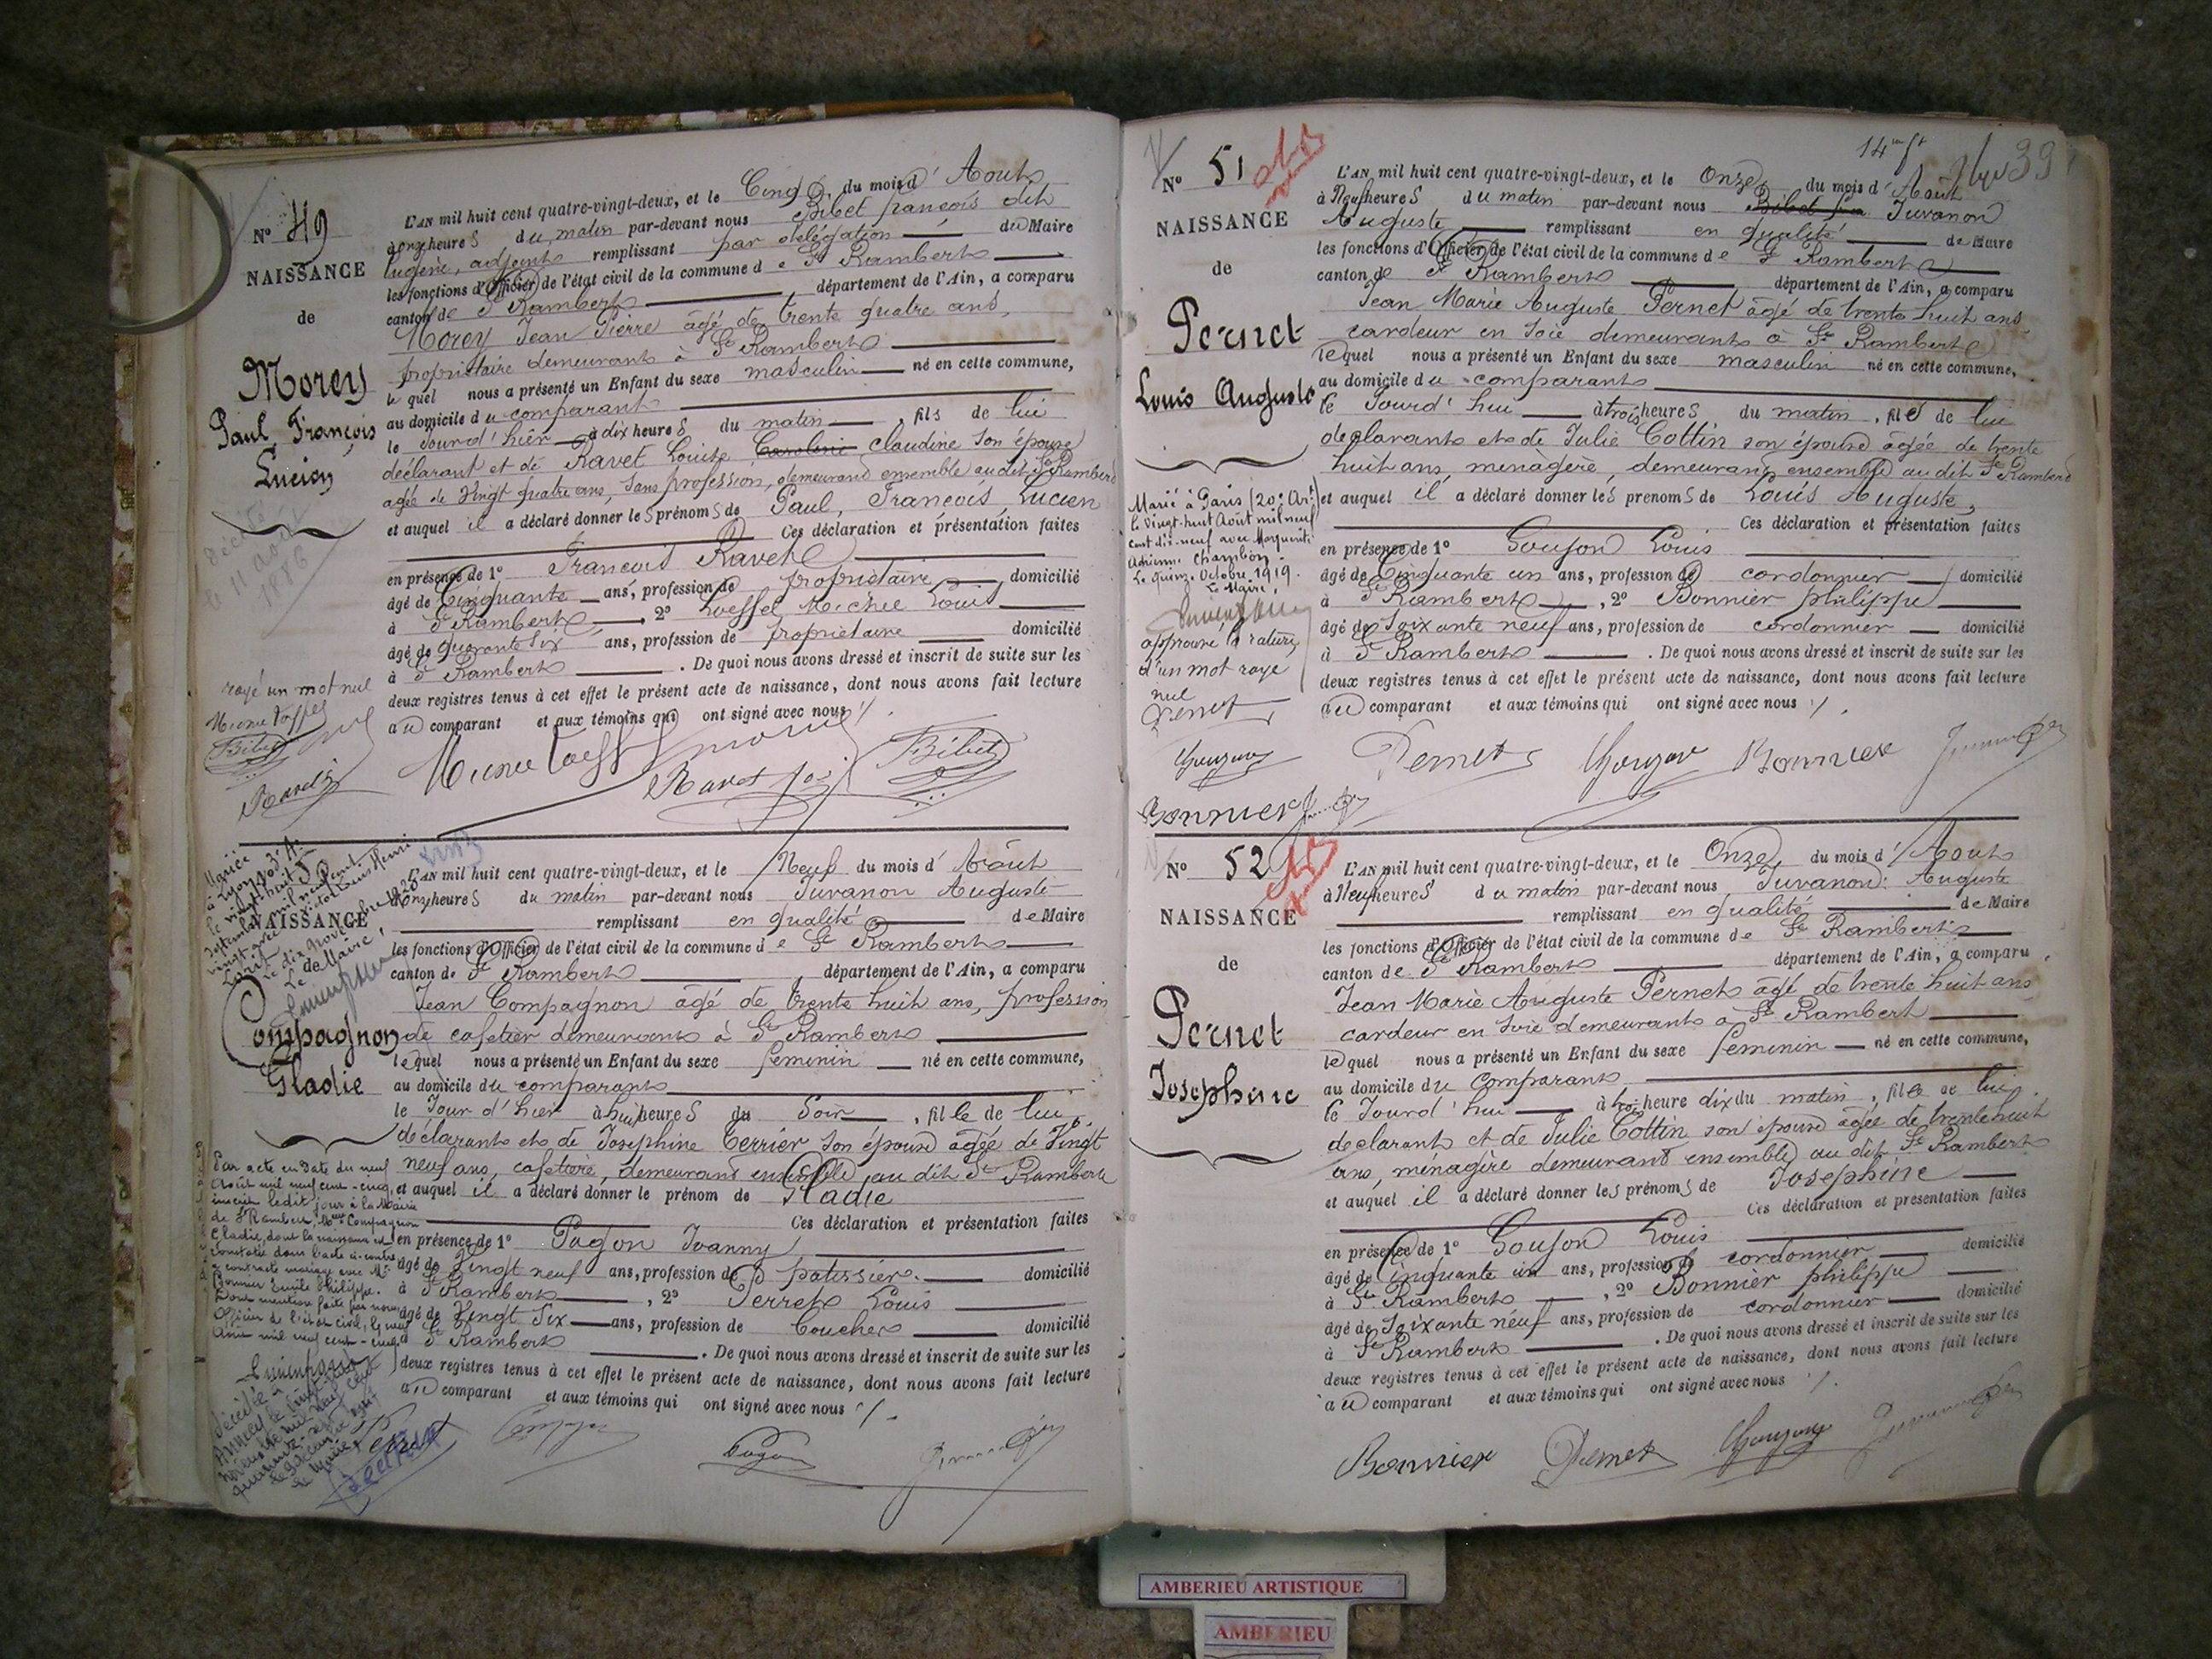 N° 49
NAISSANCE
de
Morey
Paul, François
Lucien
Décédé
le 11 Août
1886
rayé un mot nul
L'AN mil huit cent quatre-vingt-deux, et le Cinq du mois d' Août
à onze heures du matin par-devant nous Bibet françois dit
Eugène, adjoint remplissant par délégation du Maire
les fonctions d'Officier de l'état civil de la commune de St Rambert
canton de St Rambert, département de l'Ain, a comparu
Morey Jean Pierre âgé de trente quatre ans,
propriétaire demeurant à St Rambert
le quel nous a présenté un Enfant du sexe masculin né en cette commune,
au domicile du comparant
le Jourd'hier à dix heures du matin, fils de lui
déclarant et de Ravet Louise Caroline claudine son épouse
agée de Vingt quatre ans, Sans profession, demeurand ensemble au dit St Rambert
et auquel il a déclaré donner les prénoms de Paul, François, Lucien
Ces déclaration et présentation faites
en présence de 1° François Ravet
âgé de Cinquante ans, profession de propriétaire domicilié
à St Rambert, 2° Loeffel Michel Louis
âgé de quarante six ans, profession de propriétaire domicilié
à St Rambert. De quoi nous avons dressé et inscrit de suite sur les
deux registres tenus à cet effet le présent acte de naissance, dont nous avons fait lecture
au comparant et aux témoins qui ont signé avec nous ./.
Ravet
Bibet
NAISSANCE
de
Compagnon
Cladie
L'AN mil huit cent quatre-vingt-deux, et le Neuf du mois d' Août
à onze heures du matin par-devant nous Juvanon Auguste
remplissant en qualité de Maire
les fonctions d'Officier de l'état civil de la commune de St Rambert
canton de St Rambert, département de l'Ain, a comparu
Jean Compagnon âgé de trente huit ans, profession
de cafetier demeurant à St Rambert
lequel nous a présenté un Enfant du sexe féminin né en cette commune,
au domicile du comparant
le Jour d'hier à huit heures du Soir, fille de lui
déclarant et de Joséphine Terrier son épouse âgée de Vingt
neuf ans, cafetière, demeurant ensemble au dit St Rambert
et auquel il a déclaré donner le prénom de Cladie
Ces déclaration et présentation faites
en présence de 1° Pagon Joanny
âgé de Vingt neuf ans, profession de patissier domicilié
à St Rambert, 2° Perret Louis
âgé de Vingt Six ans, profession de boucher domicilié
à St Rambert. De quoi nous avons dressé et inscrit de suite sur les
deux registres tenus à cet effet le présent acte de naissance, dont nous avons fait lecture
au comparant et aux témoins qui ont signé avec nous ./.
Par acte en date du neuf
Août mil neuf cent-cinq,
inscrit ledit jour à la Mairie
de St Rambert, Mme Compagnon
Cladie, dont la naissance est
constatée dans l'acte ci-contre
a contracté mariage avec Mr
Bonnier Emile Philippe.
Dont mention faite par nous
Officier de l'état civil, le neuf
Août mil neuf cent-cinq
Perret
Pagon
14me ft
39
N° 51
NAISSANCE
de
Pernet
Louis Auguste
L'AN mil huit cent quatre-vingt-deux, et le Onze du mois d' Août
à Neuf heures du matin par-devant nous Juvanon
Auguste remplissant en qualité de Maire
les fonctions d'Officier de l'état civil de la commune de St Rambert
canton de St Rambert, département de l'Ain, a comparu
Jean Marie Auguste Pernet âgé de trente huit ans
cardeur en soie demeurant à St Rambert
lequel nous a présenté un Enfant du sexe masculin né en cette commune,
au domicile du comparant
le Jourd'hui à trois heures du matin, fils de lui
déclarant et de Julie Cottin son épouse âgée de trente
huit ans, ménagère, demeurant ensemble au dit St Rambert
et auquel il a déclaré donner les prénoms de Louis Auguste,
Ces déclaration et présentation faites
en présence de 1° Goujon Louis
âgé de Cinquante un ans, profession de cordonnier domicilié
à St Rambert, 2° Bonnier philippe
âgé de Soixante neuf ans, profession de cordonnier domicilié
à St Rambert. De quoi nous avons dressé et inscrit de suite sur les
deux registres tenus à cet effet le présent acte de naissance, dont nous avons fait lecture
au comparant et aux témoins qui ont signé avec nous ./.
Marié à Paris (20e Art)
le vingt-huit Août mil neuf
cent dix-neuf avec Marguerite
Adrienne Chambon.
Le quinze Octobre 1919.
Le Maire,
approuvé la rature
d'un mot rayé
nul
Pernet
Goujon
Bonnier
Pernet Goujon Bonnier
N° 52
NAISSANCE
de
Pernet
Joséphine
L'AN mil huit cent quatre-vingt-deux, et le Onze du mois d' Août
à Neuf heures du matin par-devant nous Juvanon Auguste
remplissant en qualité de Maire
les fonctions d'Officier de l'état civil de la commune de St Rambert
canton de St Rambert, département de l'Ain, a comparu
Jean Marie Auguste Pernet âgé de trente huit ans
cardeur en soie demeurant à St Rambert
lequel nous a présenté un Enfant du sexe féminin né en cette commune,
au domicile du comparant
le Jourd'hui à trois heure dix du matin, fille de lui
déclarant et de Julie Cottin, son épouse âgée de trente huit
ans, ménagère demeurant ensemble au dit St Rambert
et auquel il a déclaré donner les prénoms de Joséphine
Ces déclaration et présentation faites
en présence de 1° Goujon Louis
âgé de Cinquante un ans, profession de cordonnier domicilié
à St Rambert, 2° Bonnier philippe
âgé de Soixante neuf ans, profession de cordonnier domicilié
à St Rambert. De quoi nous avons dressé et inscrit de suite sur les
deux registres tenus à cet effet le présent acte de naissance, dont nous avons fait lecture
au comparant et aux témoins qui ont signé avec nous ./.
Bonnier Pernet Goujon
AMBERIEU ARTISTIQUE
AMBERIEU